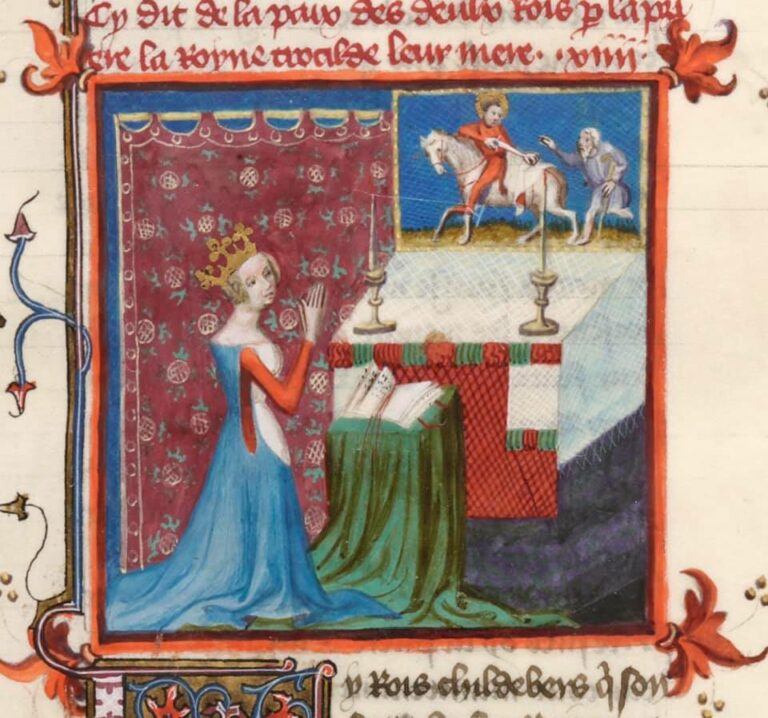 Cy dit de la paix des deulx rois p la pri
ere la royne crotilde leur mere. xiiii.
y Rois childebers q̄ son